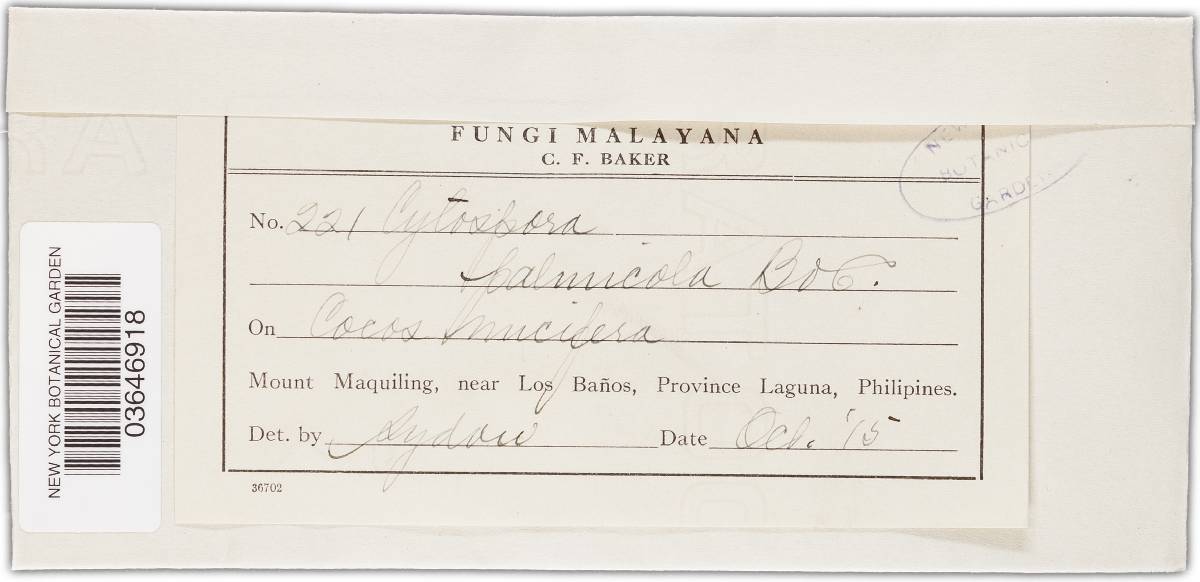 FUNGI MALAYANA
C. F. BAKER
No. 221 Cytospora
palmicola BoC.
On Cocos nucifera
Mount Maquiling, near Los Baños, Province Laguna, Philipines.
Det. by Sydow Date Oct. '15
36702
NEW
BOTANIC
GARDEN
NEW YORK BOTANICAL GARDEN
03646918